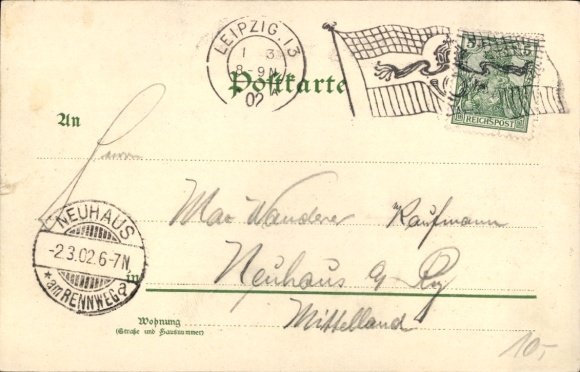 LEIPZIG.13
1 3
8-9N
02
Postkarte
5 5
REICHSPOST
An
Herrn
Max Wanderer Kaufmann
NEUHAUS
-2.3.02.6-7N
* am RENNWEG a
in Neuhaus a/ Rg
Mittelland
Wohnung
(Straße und Hausnummer)
10,-